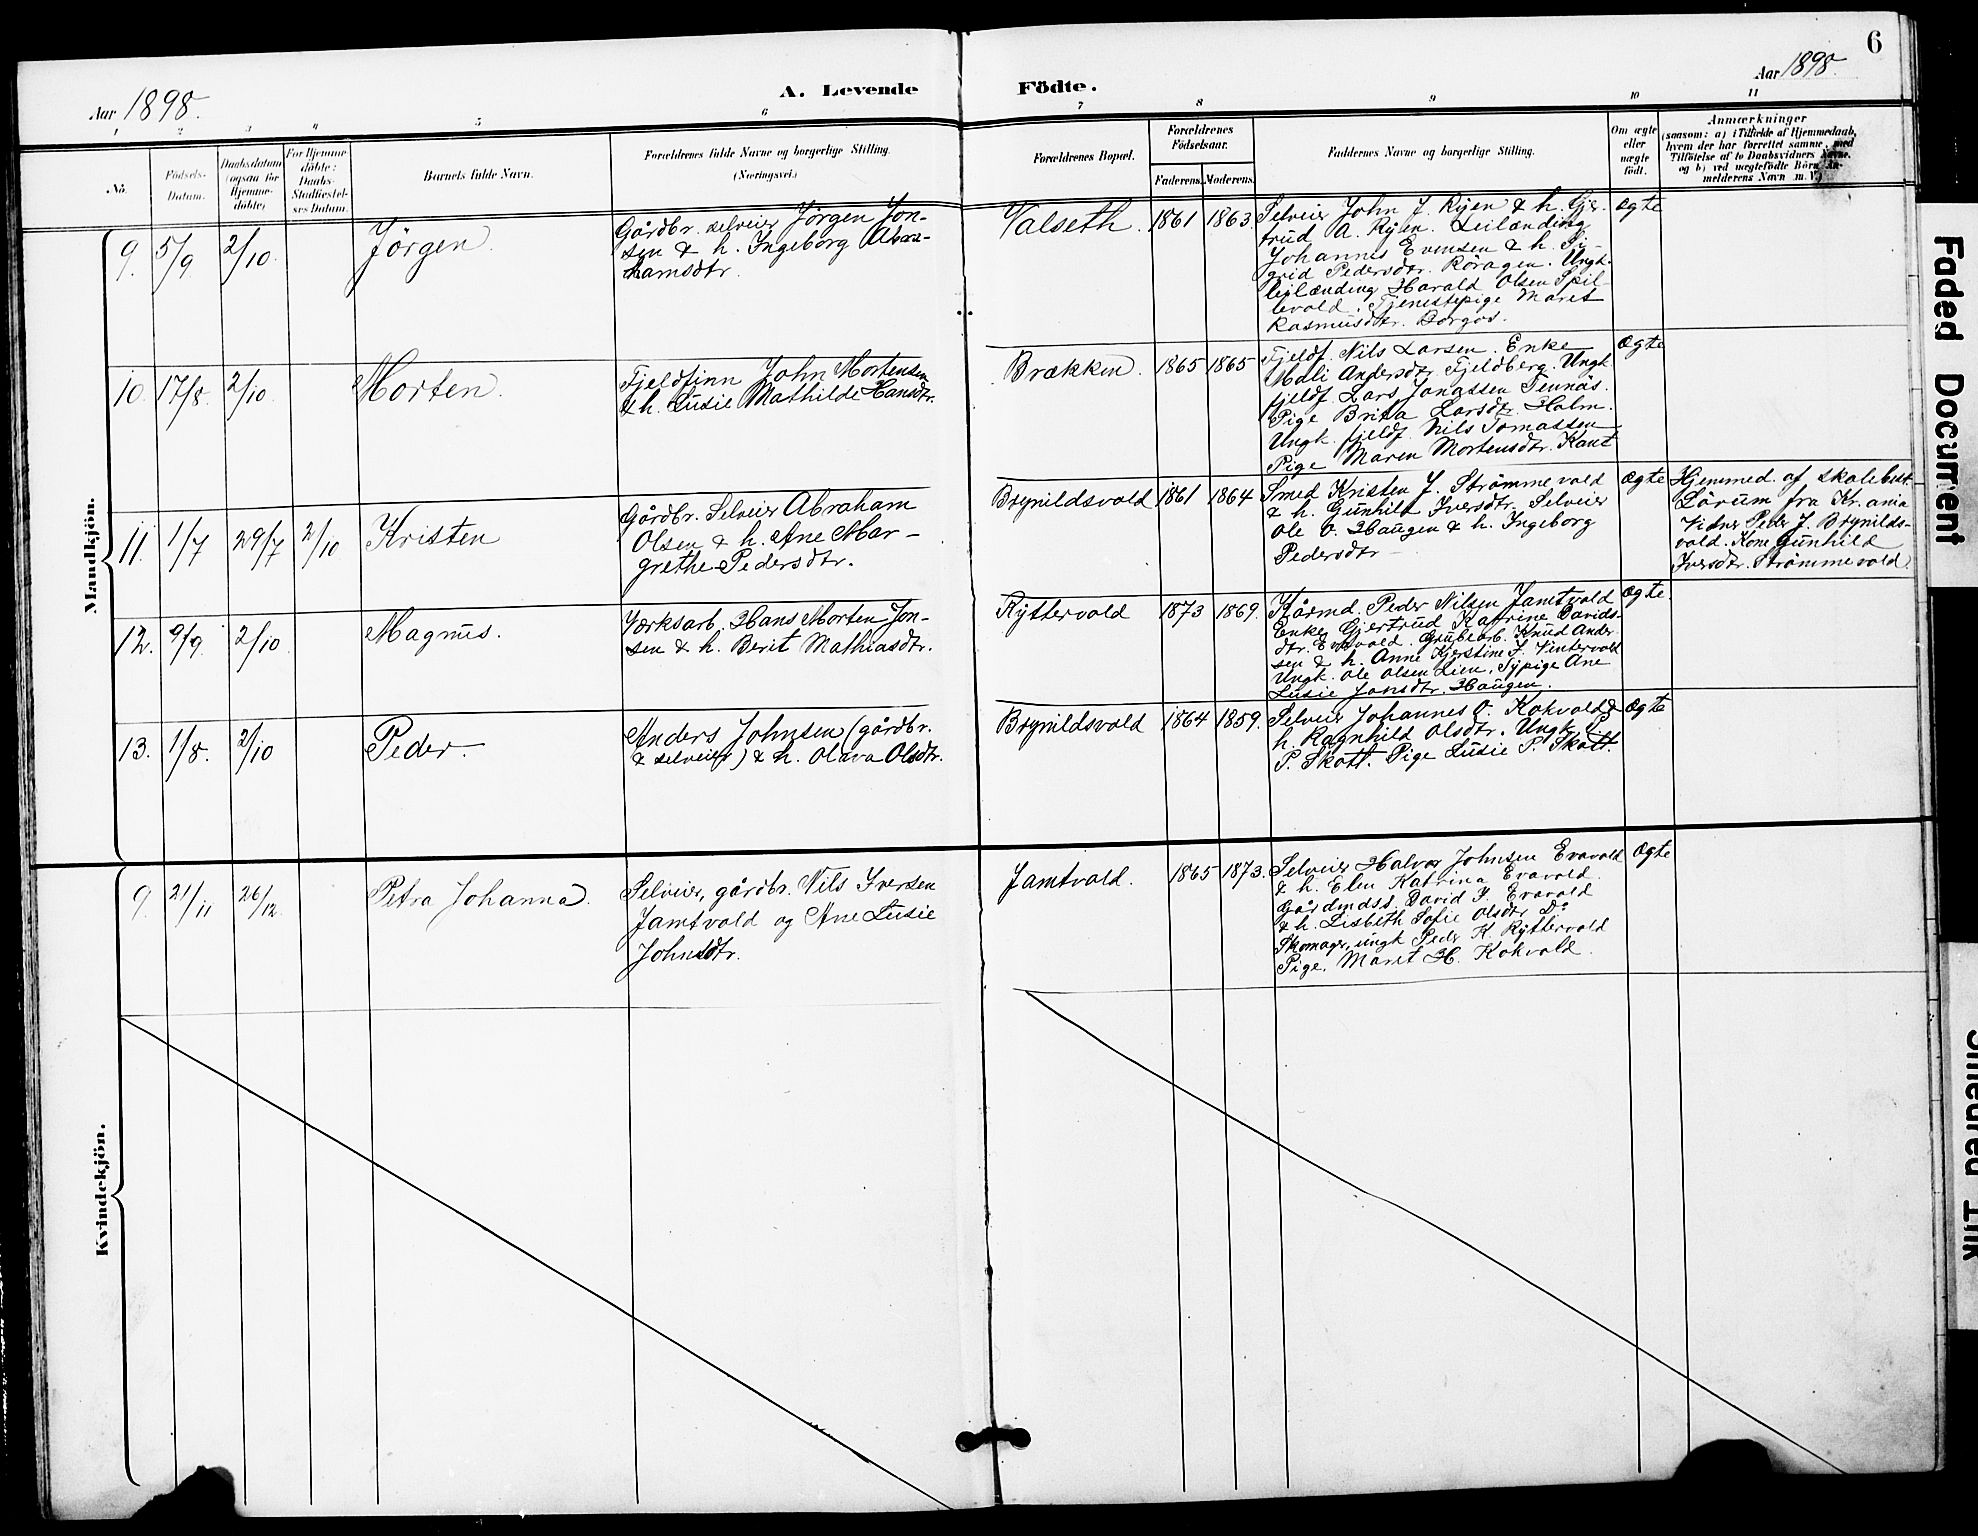 6
Aar 1898.
A. Levende Födte.
Aar 1898.
1 2 3 4 5 6 7 8 9 10 11
No.
Födsels-
Datum.
Daabsdatum
(ogsaa for
Hjemme-
döbte)
For Hjemme
döbte:
Daabs-
Stadfæstel-
ses Datum.
Barnets fulde Navn.
Forældrenes fulde Navne og borgerlige Stilling.
(Næringsvei.)
Forældrenes Bopæl.
Forældrenes
Födselsaar.
Faderens. Moderens.
Faddernes Navne og borgerlige Stilling.
Om ægte
eller
uægte
födt.
Anmærkninger
(saasom: a) i Tilfælde af Hjemmedaab,
hvem der har forrettet samme, med
Tilföielse af to Daabsvidners Navne,
og b) ved uægtefödte Börn An-
melderens Navn m. V.)
Mandkjön.
9. 5/9 2/10 Jörgen.
Gårdbr. selveier Jörgen Jon-
sen & h. Ingeborg Abra-
hamsdtr.
Valseth. 1861 1863.
Selveier John J. Ryen & h. Gjer-
trud A. Ryen. Leilænding
Johannes Evensen & h. Si-
grid Pedersdtr. Röragen. Ungk.
leilænding Harald Olsen Spil-
levold. Tjenestepige Maret
Rasmusdtr. Borgos.
Ægte
10. 17/8. 2/10. Morten.
Fjeldfinn John Mortensen
& h. Lusie Mathilde Hansdtr.
Brækken. 1865 1865
Fjeldf. Nils Larsen. Enke
Mali Andersdtr Fjeldberg. Ungk.
fjeldf. Lars Jonassen Tennäs.
Pige Brita Larsdtr. Holm.
Ungk. fjeldf. Nils Tomassen
Pige Maren Mortensdtr. Kant
Ægte
11. 1/7 29/7 2/10 Kristen
Gårdbr. Selveier Abraham
Olsen & h. Ane Mar-
grethe Pedersdtr.
Brynildsvold 1861 1864
Smed Kristen J. Strömmevold
& h. Gunhild Iversdtr. Selveier
Ole O. Haugen & h. Ingeborg
Pedersdtr
Ægte
Hjemmed. af skolebest.
Lörum fra Kr.ania
Vidner Peder J. Brynilds-
vold. Kone Gunhild
Iversdtr. Strömmevold.
12. 9/9. 2/10 Magnus.
Værksarb. Hans Morten Jon-
sen & h. Berit Mathiasdtr.
Ryttervold 1873 1869.
Kårmd. Peder Nilsen Jamtvold
Enke Gjertrud Katrine Davids-
dtr. Evavold. Grubearb. Knud Ander-
sen & h. Anne Kjerstine J. Vintervold
Ungk. Ole Olsen Lien. Sypige Ane
Lusie Jonsdtr. Haugen.
Ægte.
13. 1/8. 2/10 Peder
Anders Johnsen (gårdbr.
& selveier) & h. Olava Olsdtr.
Brynildsvold 1864 1859.
Selveier Johannes O. Kokvold &
h. Ragnhild Olsdtr. Ungk. P.
P. Skott. Pige Lusie P. Skott.
Ægte
Kvindekjön.
9. 21/11 26/12. Petra Johanna.
Selveier, gårdbr. Nils Iversen
Jamtvold og Ane Lusie
Johnsdtr.
Jamtvold. 1865 1873.
Selveier Halvor Johnsen Evavold
& h. Elen Katrina Evavold.
Gårdmdss. David J. Evavold
& h. Lisbeth Sofie Olsdtr. Do
Skomager, ungk Peder K. Ryttervold
Pige. Maret H. Kokvold.
Ægte
Faded Document
Smeared Ink